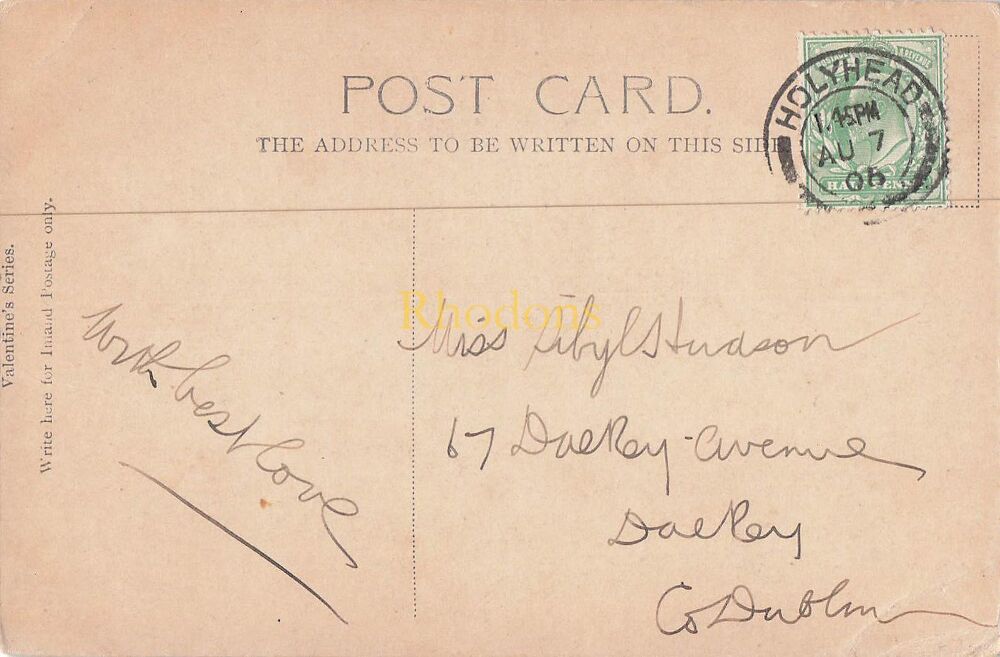 POST CARD.
THE ADDRESS TO BE WRITTEN ON THIS SIDE
HOLYHEAD
1.45PM
AU 7
06
Valentine's Series.
Write here for Inland Postage only.
With best love
Rhodons
Miss Sibyl Hudson
67 Dalkey Avenue
Dalkey
Co Dublin